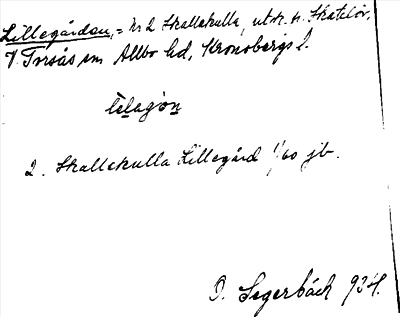 Lillegården, = Nr 2 Skallekulla, utsk. fr. Skatelöv,
V. Torsås sn Allbo hd, Kronobergs l.
lelagọn
2. Skallekulla Lillegård 1/60 jb.
O. Segerbäck 934.